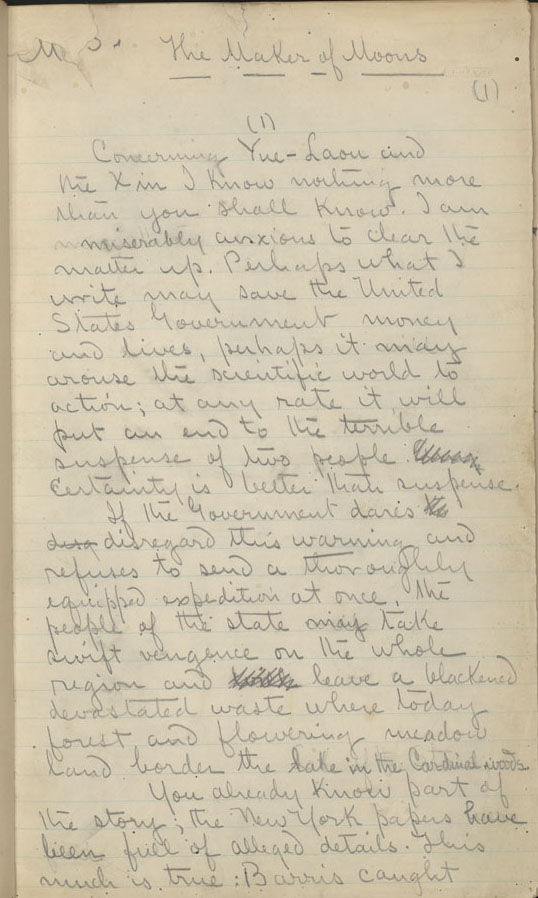 The Maker of Moons
(1)
(1)
Concerning Yue-Laou and
the Xin I know nothing more
than you shall know. I am
miserably anxious to clear the
matter up. Perhaps what I
write may save the United
States Government money
and lives, perhaps it may
arouse the scientific world to
action; at any rate it will
put an end to the terrible
suspense of two people.
Certainty is better than suspense.
If the Government dares
disregard this warning and
refuses to send a thoroughly
equipped expedition at once, the
people of the state may take
swift vengence on the whole
region and leave a blackened
devastated waste where today
forest and flowering meadow
land border the lake in the Cardinal woods.
You already know part of
the story; the New York papers have
been full of alleged details. This
much is true: Barris caught